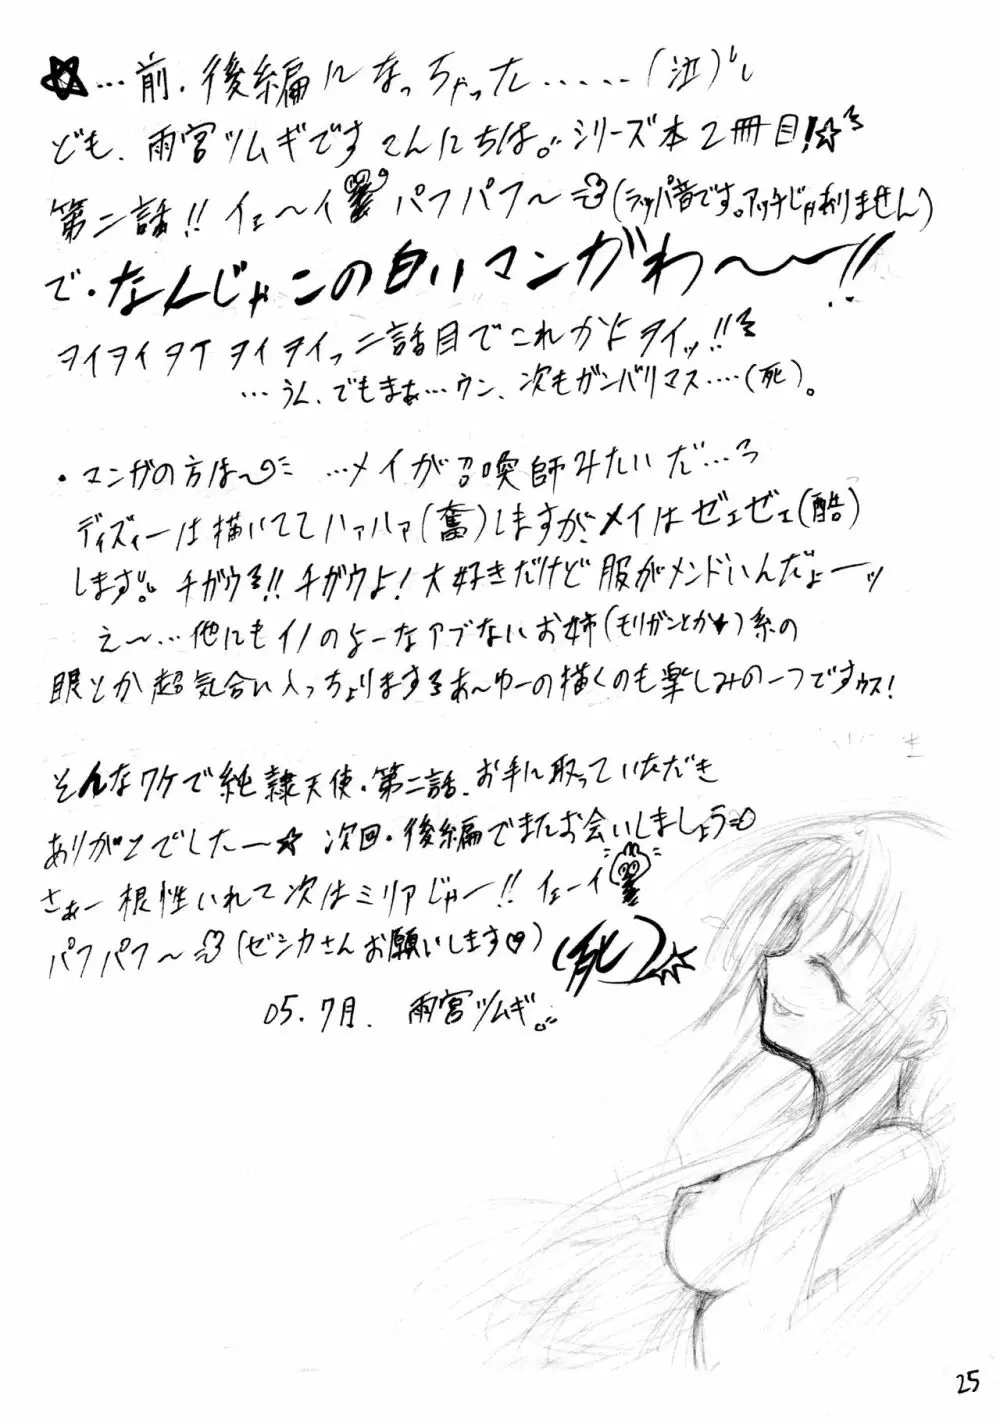 ☆…前・後編になっちゃった……(泣)
ども、雨宮ツムギです こんにちは。シリーズ本2冊目!☆
第二話!! イェ〜イ パフパフ〜(ラッパ音です。アッチじゃありません)
で・なんじゃこの白いマンがわ〜〜ー!!
ヲイヲイヲイヲイヲイっ二話目でこれかよヲイッ!!
…うん、でもまぁ…ウン、次もガンバリマス‥‥(死)。
・マンガの方は〜 …メイが召喚師みたいだ…
ディズィーは描いててハァハァ(奮)しますが、メイはゼェゼェ(酷)
します。チガウ!! チガウよ!大好きだけど服がメンドいんだよーッ
え〜…他にもイノのよーなアブないお姉(モリガンとか)系の
眼とか超気合い入っちょります あーゆーの描くのも楽しみの一つですゥス!
そんなワケで純隷天使・第二話、お手に取っていただき
ありがとでしたー☆ 次回・後編でまたお会いしましょう
さぁー根性いれて次はミリアじゃー!! イェーイ
パフパフ〜(ゼシカさんお願いします♡) (死)
05.7月. 雨宮ツムギ
25